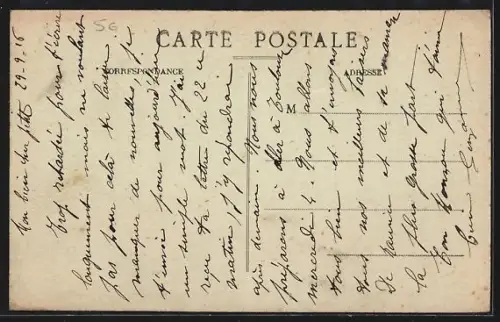 56
CARTE POSTALE
CORRESPONDANCE
ADRESSE
M
29-9-16
Mon bien cher petit
Trop retardée pour t'écrire
longuement mais ne voulant
pas pour cela te laisser
manquer de nouvelles, je
t'envoie pour aujourd'hui
un simple mot. J'ai
reçu ta lettre du 22 ce
matin, j'y répondrai
après demain. Nous nous
préparons à aller à Toulouse
mercredi 4. Nous allons
tous bien et t'envoyons
tous nos meilleurs baisers
de Maurice et de ta maman
la plus grosse part
Ton qui t'aime